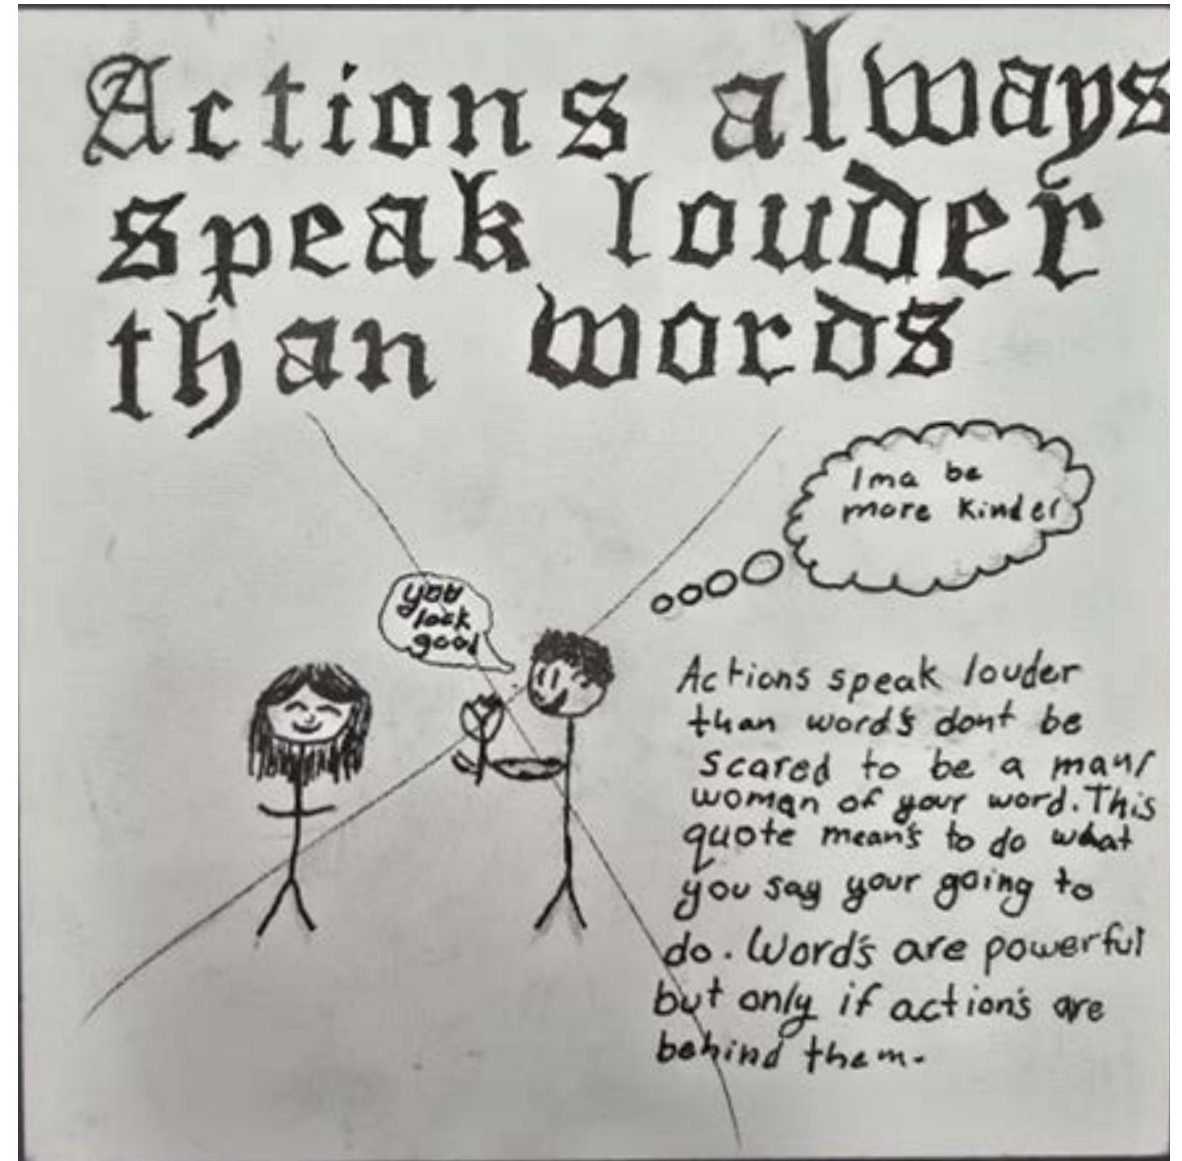 Actions always
speak louder
than words
Ima be
more kinder
you
look
good
Actions speak louder
than word's dont be
scared to be a man/
woman of your word. This
quote mean's to do what
you say your going to
do. Word's are powerful
but only if action's are
behind them.